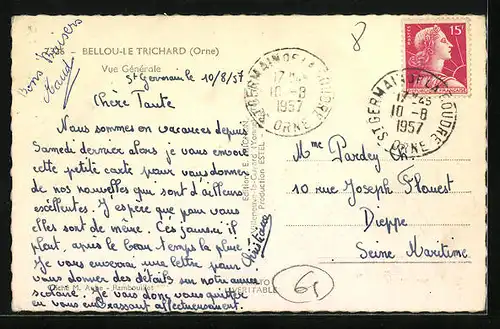 - BELLOU-LE TRICHARD (Orne)
Vue Générale
St Germain le 10/8/57
Bons Baisers
Chère Tante
Nous sommes en vacances depuis
Samedi dernier alors je vous envoie
cette petite carte pour vous donner
de nos nouvelles qui sont d'ailleurs
excellentes. J'espère que pour vous
elles sont de même. Ces jours-ci il
pleut, après le beau temps la pluie.
Je vous enverrai une lettre pour
vous donner des détails sur notre année
scolaire. Je vais donc vous quitter
en vous embrassant affectueusement.
Cliché M. - Rambouillet
Production ESTEL
VERITABLE
ST GERMAIN DE LA COUDRE
17 H45
10 - 8
1957
ORNE
8
15F
ST GERMAIN DE LA COUDRE
17 H45
10 - 8
1957
ORNE
Mme Pardey
10 rue Joseph Flouest
Dieppe
Seine Maritime
61